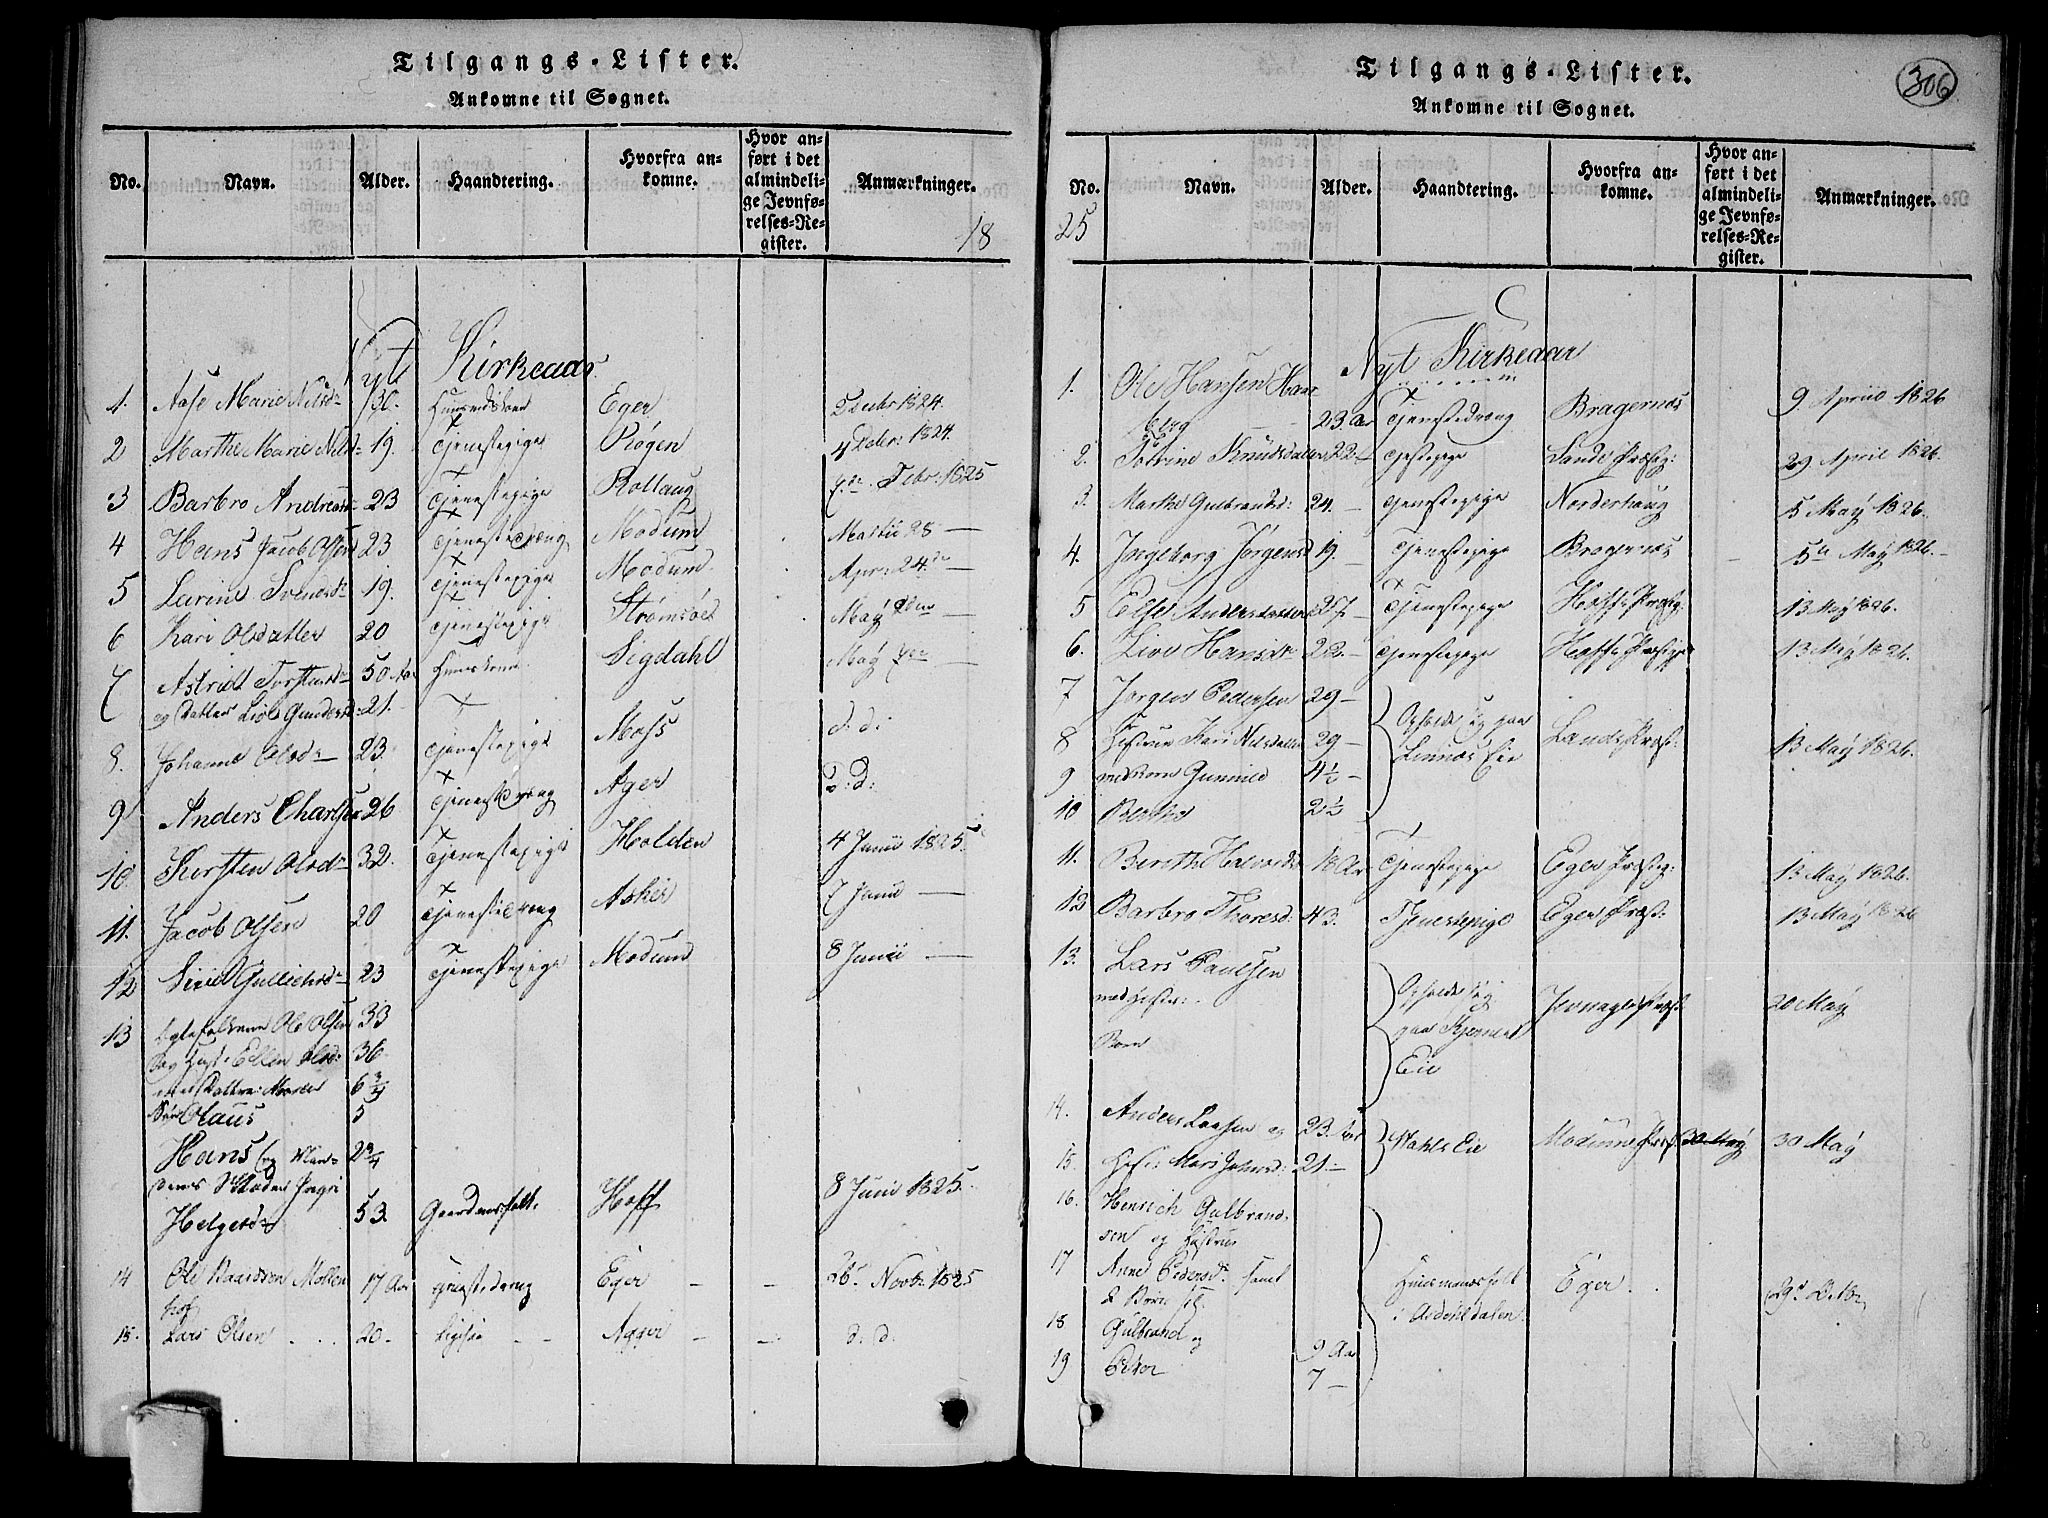 Tilgangs-Lister.
Ankomne til Sognet.
No. Navn. Alder. Haandtering. Hvorfra ankomne. Hvor anført i det almindelige Jevnførelses-Register. Anmærkninger.
18
Nyt Kirkeaar
1. Aase Marie Nilsdr 30. Eger Decbr 1824.
2 Marthe Marie Nilsd: 19. Tjenestepige Røgen 4 Decbr: 1824.
3 Barbro Andreasdr 23 Tjenestepige Rollaug Febr: 1825
4 Hans Jacob Olsen 23 Tjenestedreng Modum Martii 28 —
5 Larine Svendsdr 19. Tjenestepige Modum Apr: 24de —
6 Kari Olsdatter 20 Tjenestepige Strømsøe May —
7 Astrid Torstensdr 50 Aar Sigdahl May —
og Datter Live Gundersd: 21.
8. Johanne Olsdr 23. Tjenestepige Moss d: d:
9 Anders Charlsen 26 Tjenestedreng Ager D: d:
10. Kersten Olsdr 32. Tjenestepige Holden 4 Junii 1825.
11. Jacob Olsen 20 Tjenestedreng Asker 7 Junii —
12 Siri Gullichsdr 23 Tjenestepige Modum 8 Junii —
13 Ole Olsen 33
og Hust: Ellen Olsd: 36
med Datter Maren 6 3/4
Søn Olaus 5
Hans og Man- 2 3/4
dens Moder Ingri
Helgesdr 53. Gaardmandsfolk. Hoff 8 Junii 1825.
14 Ole Baardsen Møllen 17 Aar Tjenestedreng Eger — — 26 Novbr 1825
hof
15. Lars Olsen . . . 20. ligesaa — — Agger — — d. d.
306
Tilgangs-Lister.
Ankomne til Sognet.
No. Navn. Alder. Haandtering. Hvorfra ankomne. Hvor anført i det almindelige Jevnførelses-Register. Anmærkninger.
25
Nyt Kirkeaar
1. Ole Hansen Haar
berg 23 Aar Tjenestedreng Bragernæs 9 April 1826
2. Torine Knudsdatter 22 — Tjenestepige Sande Præstg: 29 April 1826.
3. Marthe Gulbrandsd: 24. — Tjenestepige Norderhaug 5 May 1826.
4. Ingeborg Jørgensd 19. — Tjenestepige Bragernæs 5te May 1826. —
5 Else Andersdatter 27. — Tjenestepige Hoffs Præstg: 13 May 1826.
6. Live Hansdr 22. — Tjenestepige Hoffs Præstg: 13 May 1826.
7 Jørgen Pedersen 29 —
8 Hustrue Kari Nilsdatter 29 — Opholde sig paa Lands Præst: 13 May 1826.
9 med Børn Gunnild 4 1/2 — Linnæs Eie
10 Berthe 2 1/2
11. Birith Halvorsd 18 Aar Tjenestepige Eger Præstg: 13 May 1826.
12 Barbro Thoresd: 43. Tjenestepige Eger Præst: 13 May 1826
13. Lars Paulsen
med Hustr: Opholde sig Jevnager Præst: 20 May
Børn paa Kjernaas
Eie
14. Anders Larsen og 23. Aar Wahls Eie Modums Præst 30 May 30 May
15. Hust: Mari Johnsd: 21. —
16. Henrich Gulbrand-
sen og Hustrue
17 Anne Pedersdr. samt Huusmandsfolk Eger . . 29d Octbr
2 Børn i Aasdøhldalen
18 Gulbrand og 9 Aar
19 Peder 7 —